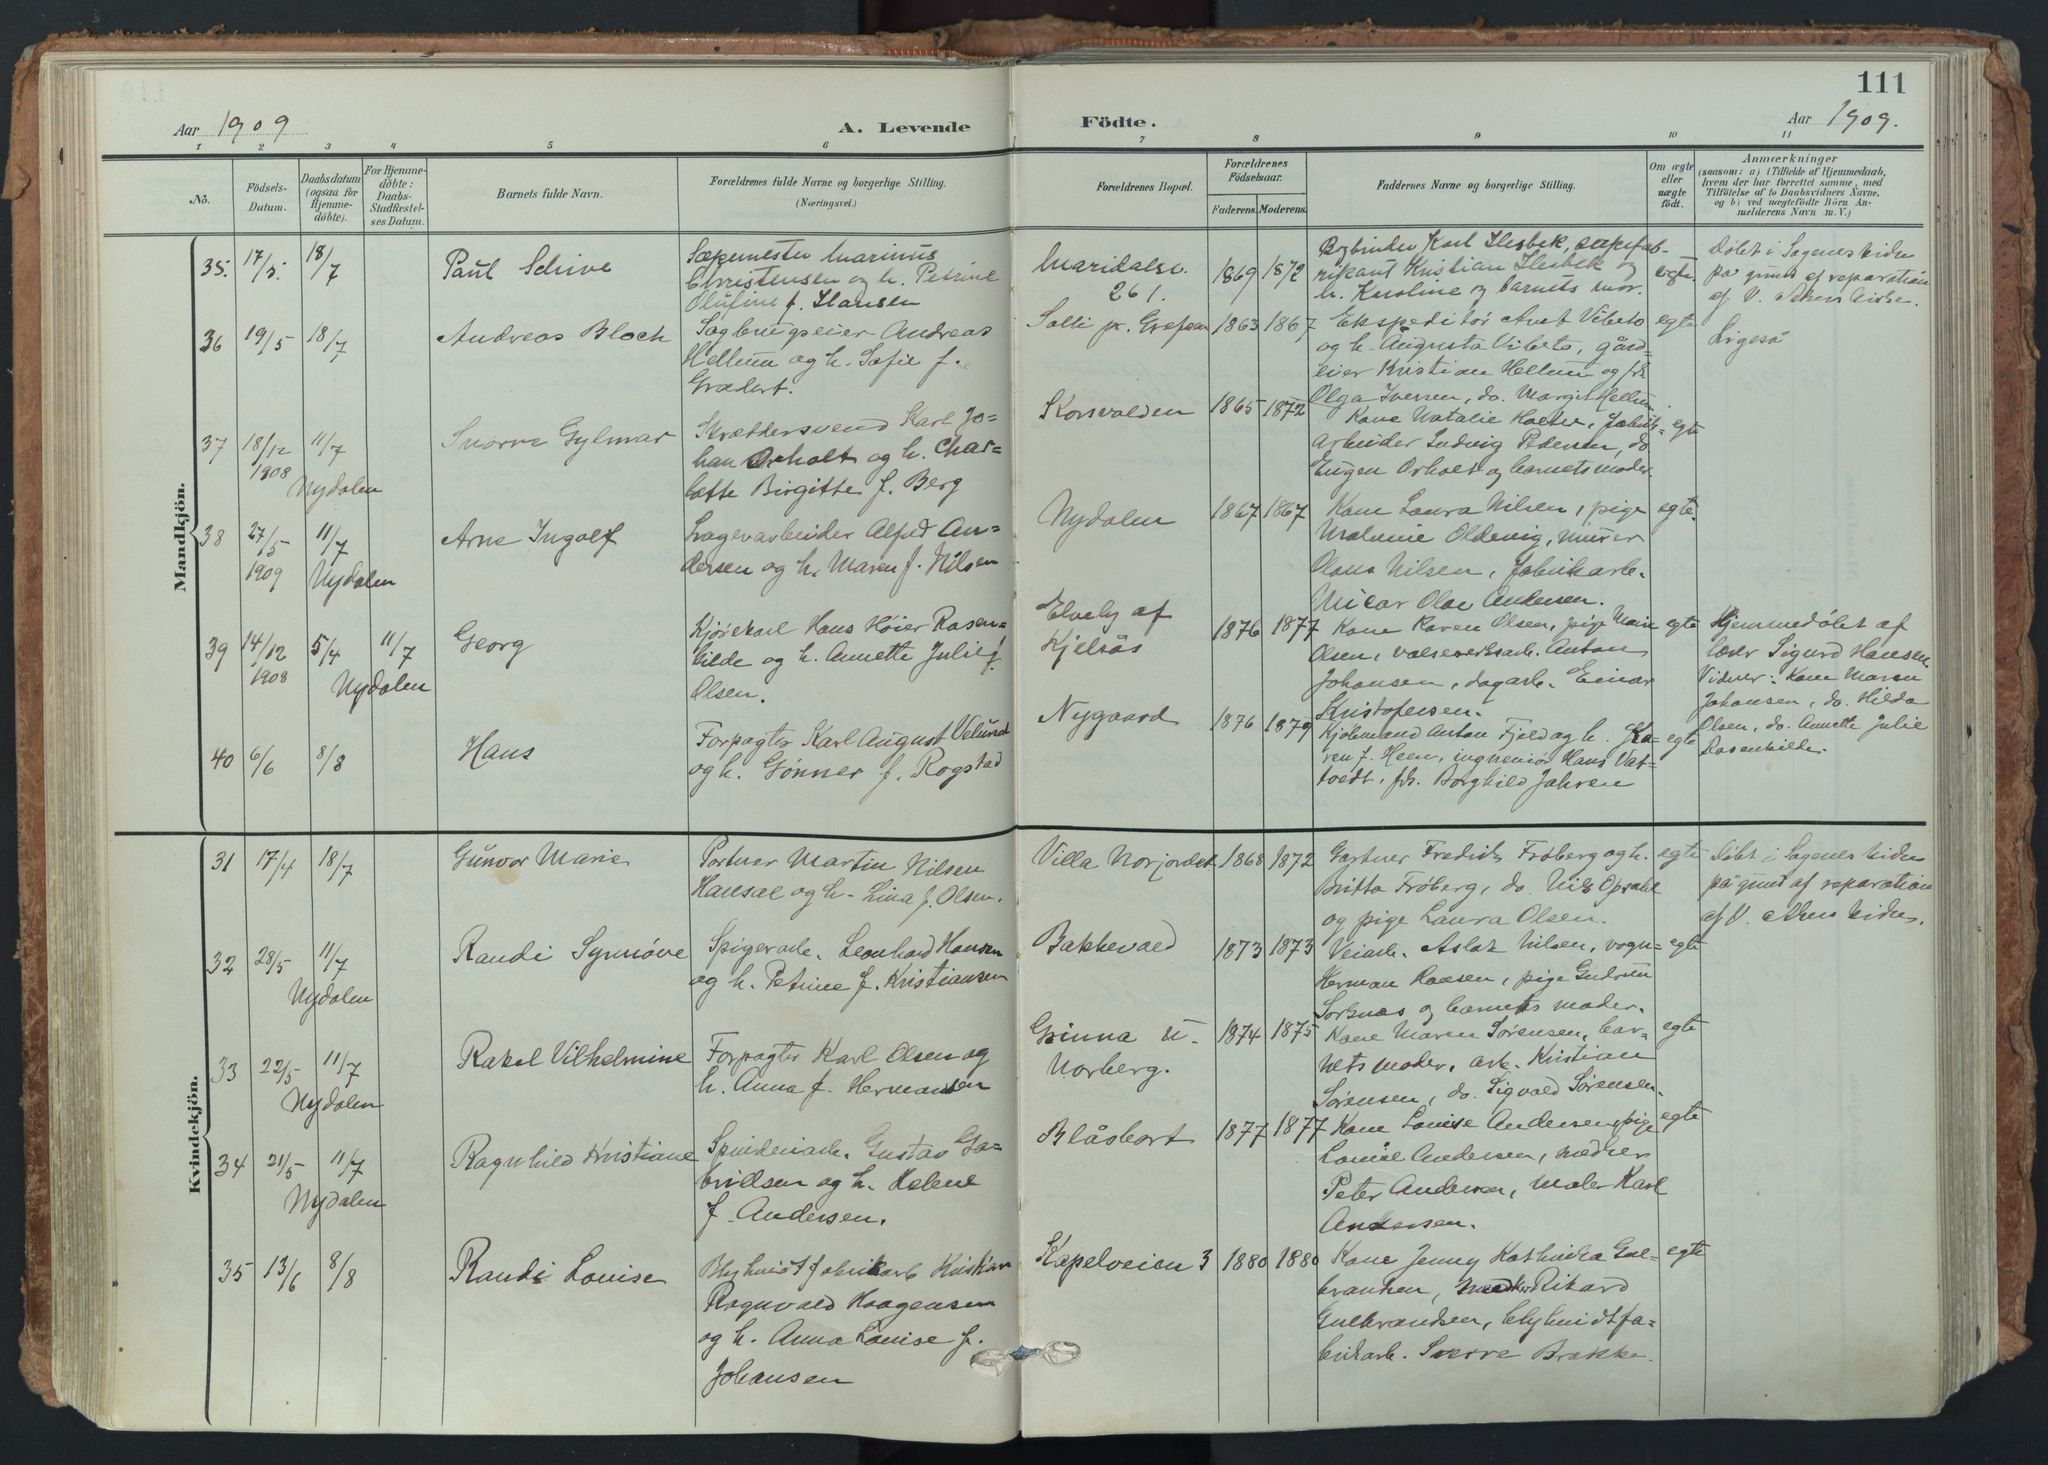 111
Aar 1909
A. Levende
Födte.
Aar 1909.
1 2 3 4 5 6 7 8 9 10 11
No.
Födsels-
Datum.
Daabsdatum
(ogsaa for
Hjemme-
döbte).
For Hjemme-
döbte:
Daabs-
Stadfæstel-
ses Datum.
Barnets fulde Navn.
Forældrenes fulde Navne og borgerlige Stilling.
(Næringsvei.)
Forældrenes Bopæl.
Forældrenes
Födselsaar.
Faderens. Moderens.
Faddernes Navne og borgerlige Stilling.
Om ægte
eller
uægte
födt.
Anmærkninger
(saasom: a) i Tilfælde af Hjemmedaab,
hvem der har forrettet samme, med
Tilföielse af to Daabsvidners Navne,
og b) ved uægtefödte Börn An-
melderens Navn m. V.)
Mandkjön.
35. 17/5. 18/7
Paul Schive
Sæpemester Marinus
Christensen og h. Petrine
Olufine f. Hansen
Maridalsv.
261.
1869 1872
Bogbinder Karl Ilesbek, sæpefab-
rikant Kristian Ilesbek og
h. Karoline og barnets mor.
egte.
Døbt i Sagenes kirke
på grund af reparation
af V. Akers kirke.
36 19/5 18/7
Andreas Bloch
Sagbrugseier Andreas
Hellum og h. Sofie f.
Gradert.
Solli pr. Grefsen
1863 1867
Ekspeditør Arnt Vibeto
og h. Augusta Vibeto, gård-
eier Kristian Hellum og frk
Olga Iversen, do. Margit Hellum.
egte
Ligeså
37 18/12 11/7
1908 Nydalen
Snorre Gylmar
Skræddersvend Karl Jo-
han Orholt og h. Char-
lotte Birgitte f. Berg
Korsvolden
1865 1872
Kone Natalie Holter, fabrik-
arbeider Ludvig Pedersen, do.
Eugen Orholt og barnets moder.
egte
38 27/5 11/7
1909 Nydalen
Arne Ingolf
Lagerarbeider Alfred An-
dersen og h. Maren f. Nilsen
Nydalen
1867 1867
Kone Laura Nilsen, pige
Malvine Oldevig, murer
Olaus Nilsen, fabrikarb.
Olav Andersen.
egte.
39 14/12 5/4 11/7
1908 Nydalen
Georg
Kjørekarl Hans Høier Rosen-
kilde og h. Annette Julie f.
Olsen.
Elvely af
Kjelsås
1876 1877
Kone Karen Olsen, pige Marie
Olsen, valseverksarb. Anton
Johansen, dagarb. Einar
Kristofersen.
egte
Hjemmedøbt af
lærer Sigurd Hansen.
Vidner: Kone Maren
Johansen, do. Hilda
Olsen, do. Annette Julie
Rosenkilde.
40 6/6 8/8
Hans
Forpagter Karl August Velund
og h. Gønner f. Rogstad
Nygaard
1876 1879
Kjøbmand Anton Fjeld og h. Ka-
ren f. Heen, ingeniør Hans Vat-
vedt, frk. Borghild Jahren
egte
Kvindekjön.
31 17/4 18/7
Gunvor Marie
Portner Martin Nilsen
Hansal og h. Lina f. Olsen.
Villa Norjordet
1868 1872
Gartner Fredrik Frøberg og h.
Britta Frøberg, do. Nils Opsahl
og pige Laura Olsen.
egte
Døbt i Sagenes kirke
på grund af reparation
af V. Akers kirke.
32 28/5 11/7
Nydalen
Randi Synnøve
Spigerarb. Leonhard Hansen
og h. Petrine f. Kristiansen
Bakkevold
1873 1873
Veiarb. Aslak Nilsen, vogn-
Herman Hansen, pige Gudrun
Sorknæs og barnets moder.
egte
33 22/5 11/7
Nydalen
Rakel Vilhelmine
Forpagter Karl Olsen og
h. Anna f. Hermansen
Grinna u.
Norberg.
1874 1875
Kone Maren Sørensen, bar-
nets moder, arb. Kristian
Sørensen, do. Sigvald Sørensen.
egte
34 21/5 11/7
Nydalen
Ragnhild Kristiane
Spinderiarb. Gustav Ga-
brillsen og h. Helene
f. Andersen.
Blåsbort
1877 1877
Kone Louise Andersen, pige
Louise Andersen, snedker
Peter Andersen, maler Karl
Andersen.
egte
35 13/6 8/8
Randi Louise
Blyhvidtfabrikarb Kristian
Ragnvald Haagensen
og h. Anna Louise f.
Johansen
Kapelveien 3
1880 1880
Kone Jenny Kathinka Gul-
bransen, snedker Rikard
Gulbrandsen, blyhvidtfa-
brikarb. Sverre Brække.
egte